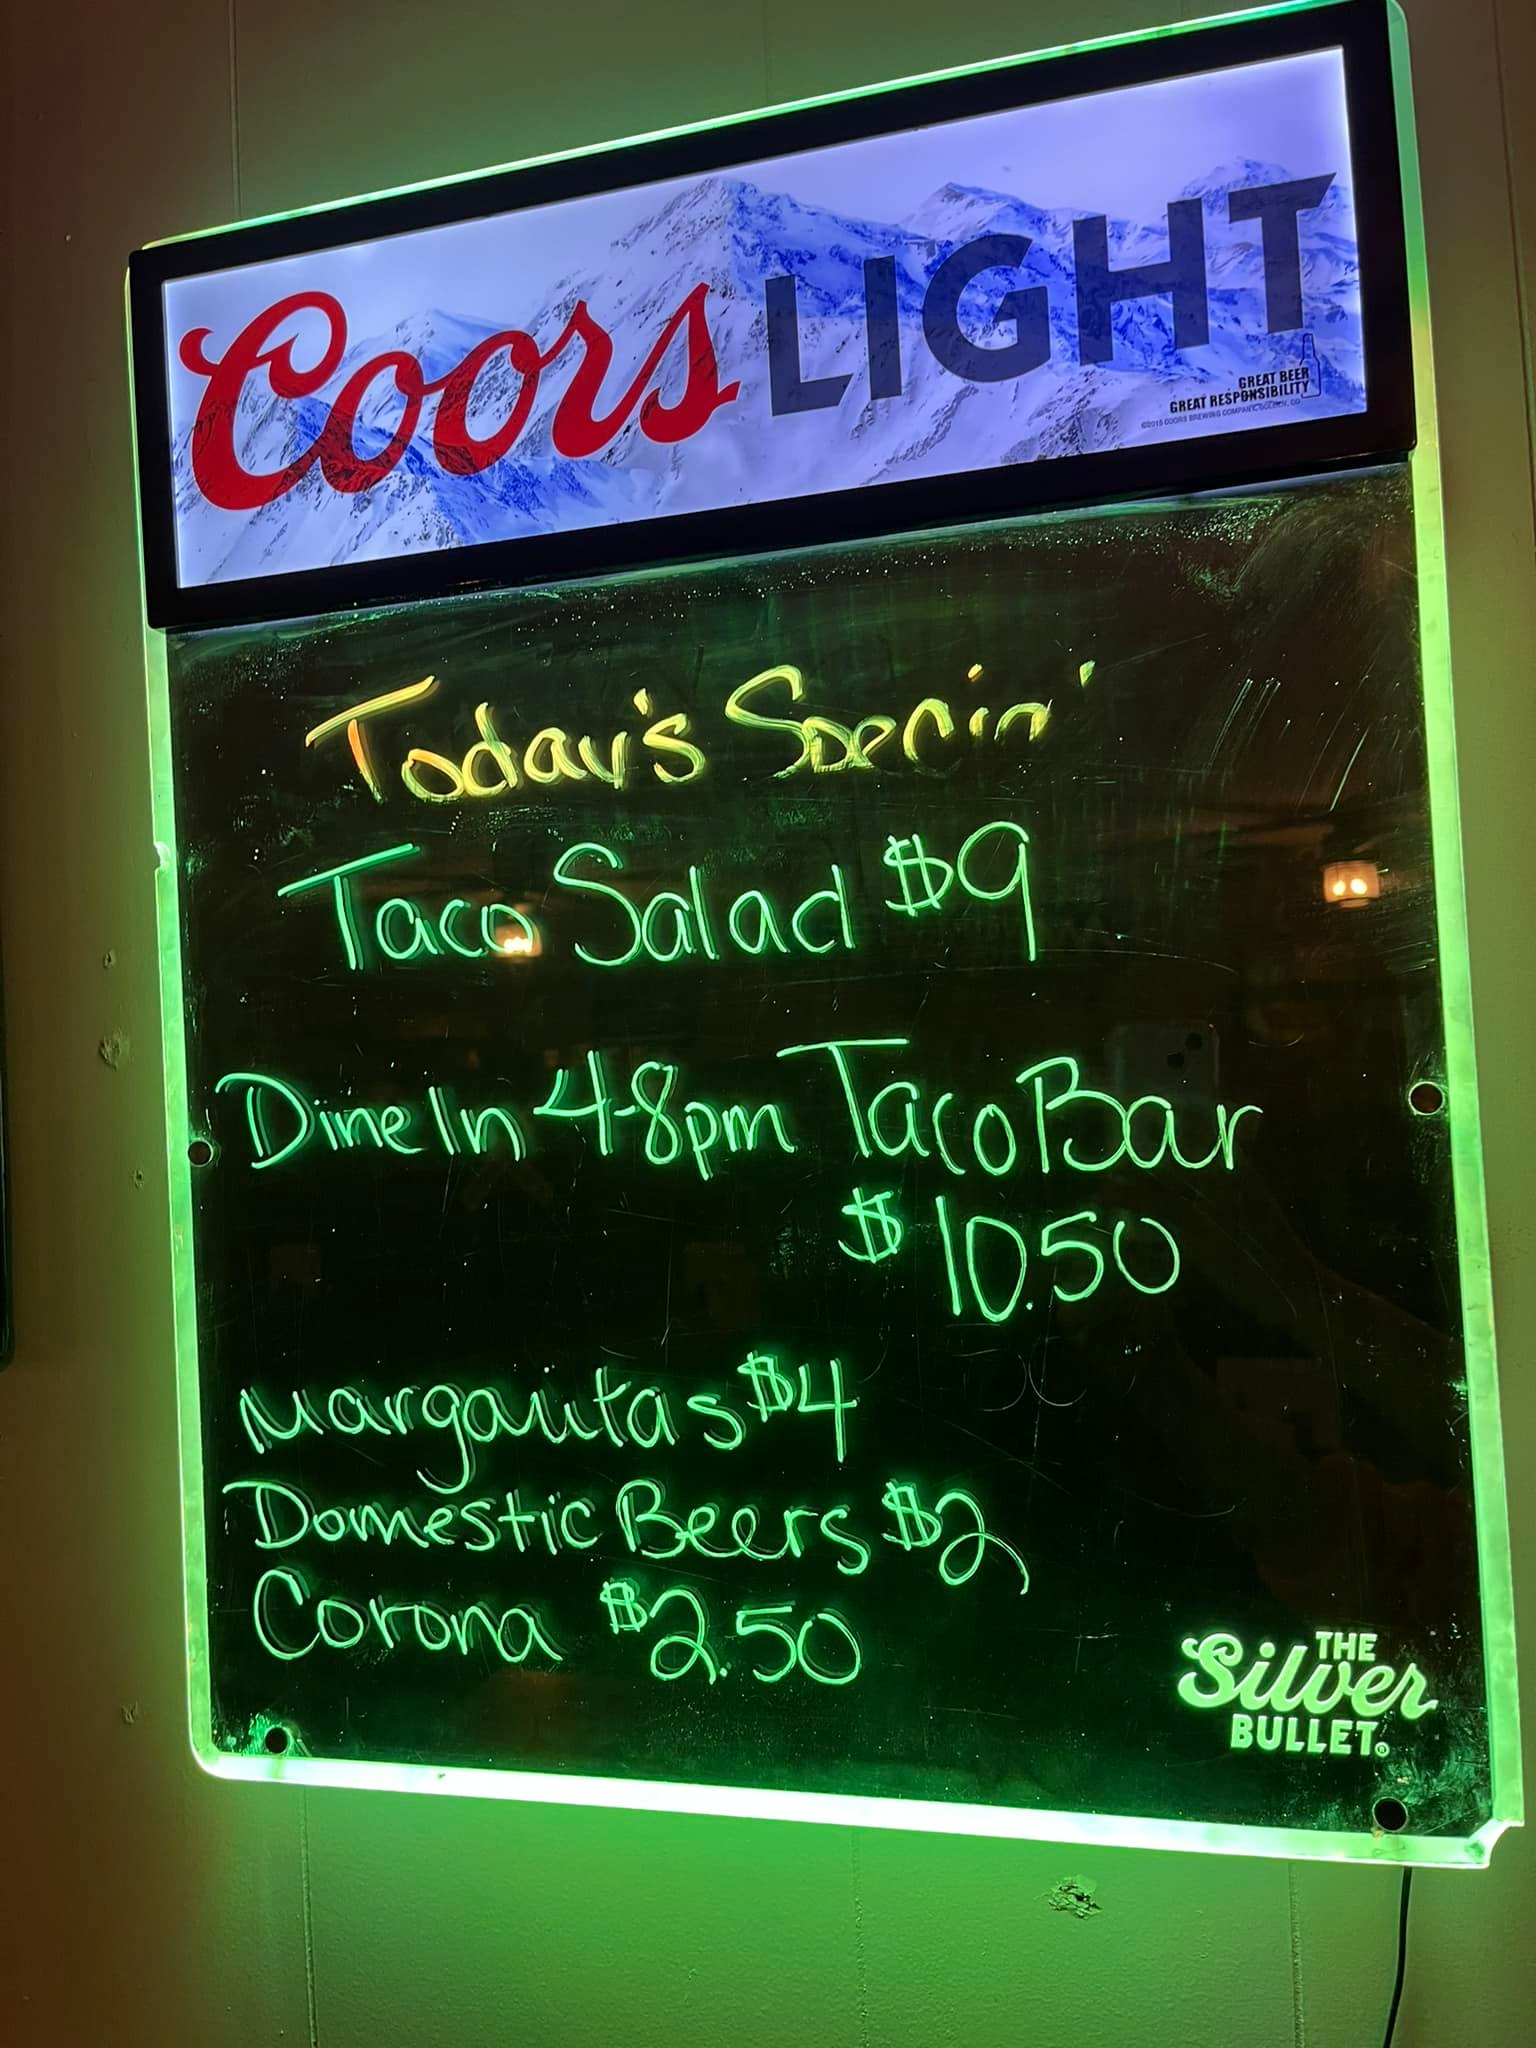 Coors LIGHT
GREAT BEER
GREAT RESPONSIBILITY
©2015 COORS BREWING COMPANY, GOLDEN, CO
Today's
Taco Salad $9
Dine In 4-8pm Taco Bar
$10.50
Margaritas $4
Domestic Beers $2
Corona $2.50
THE
Silver
BULLET®